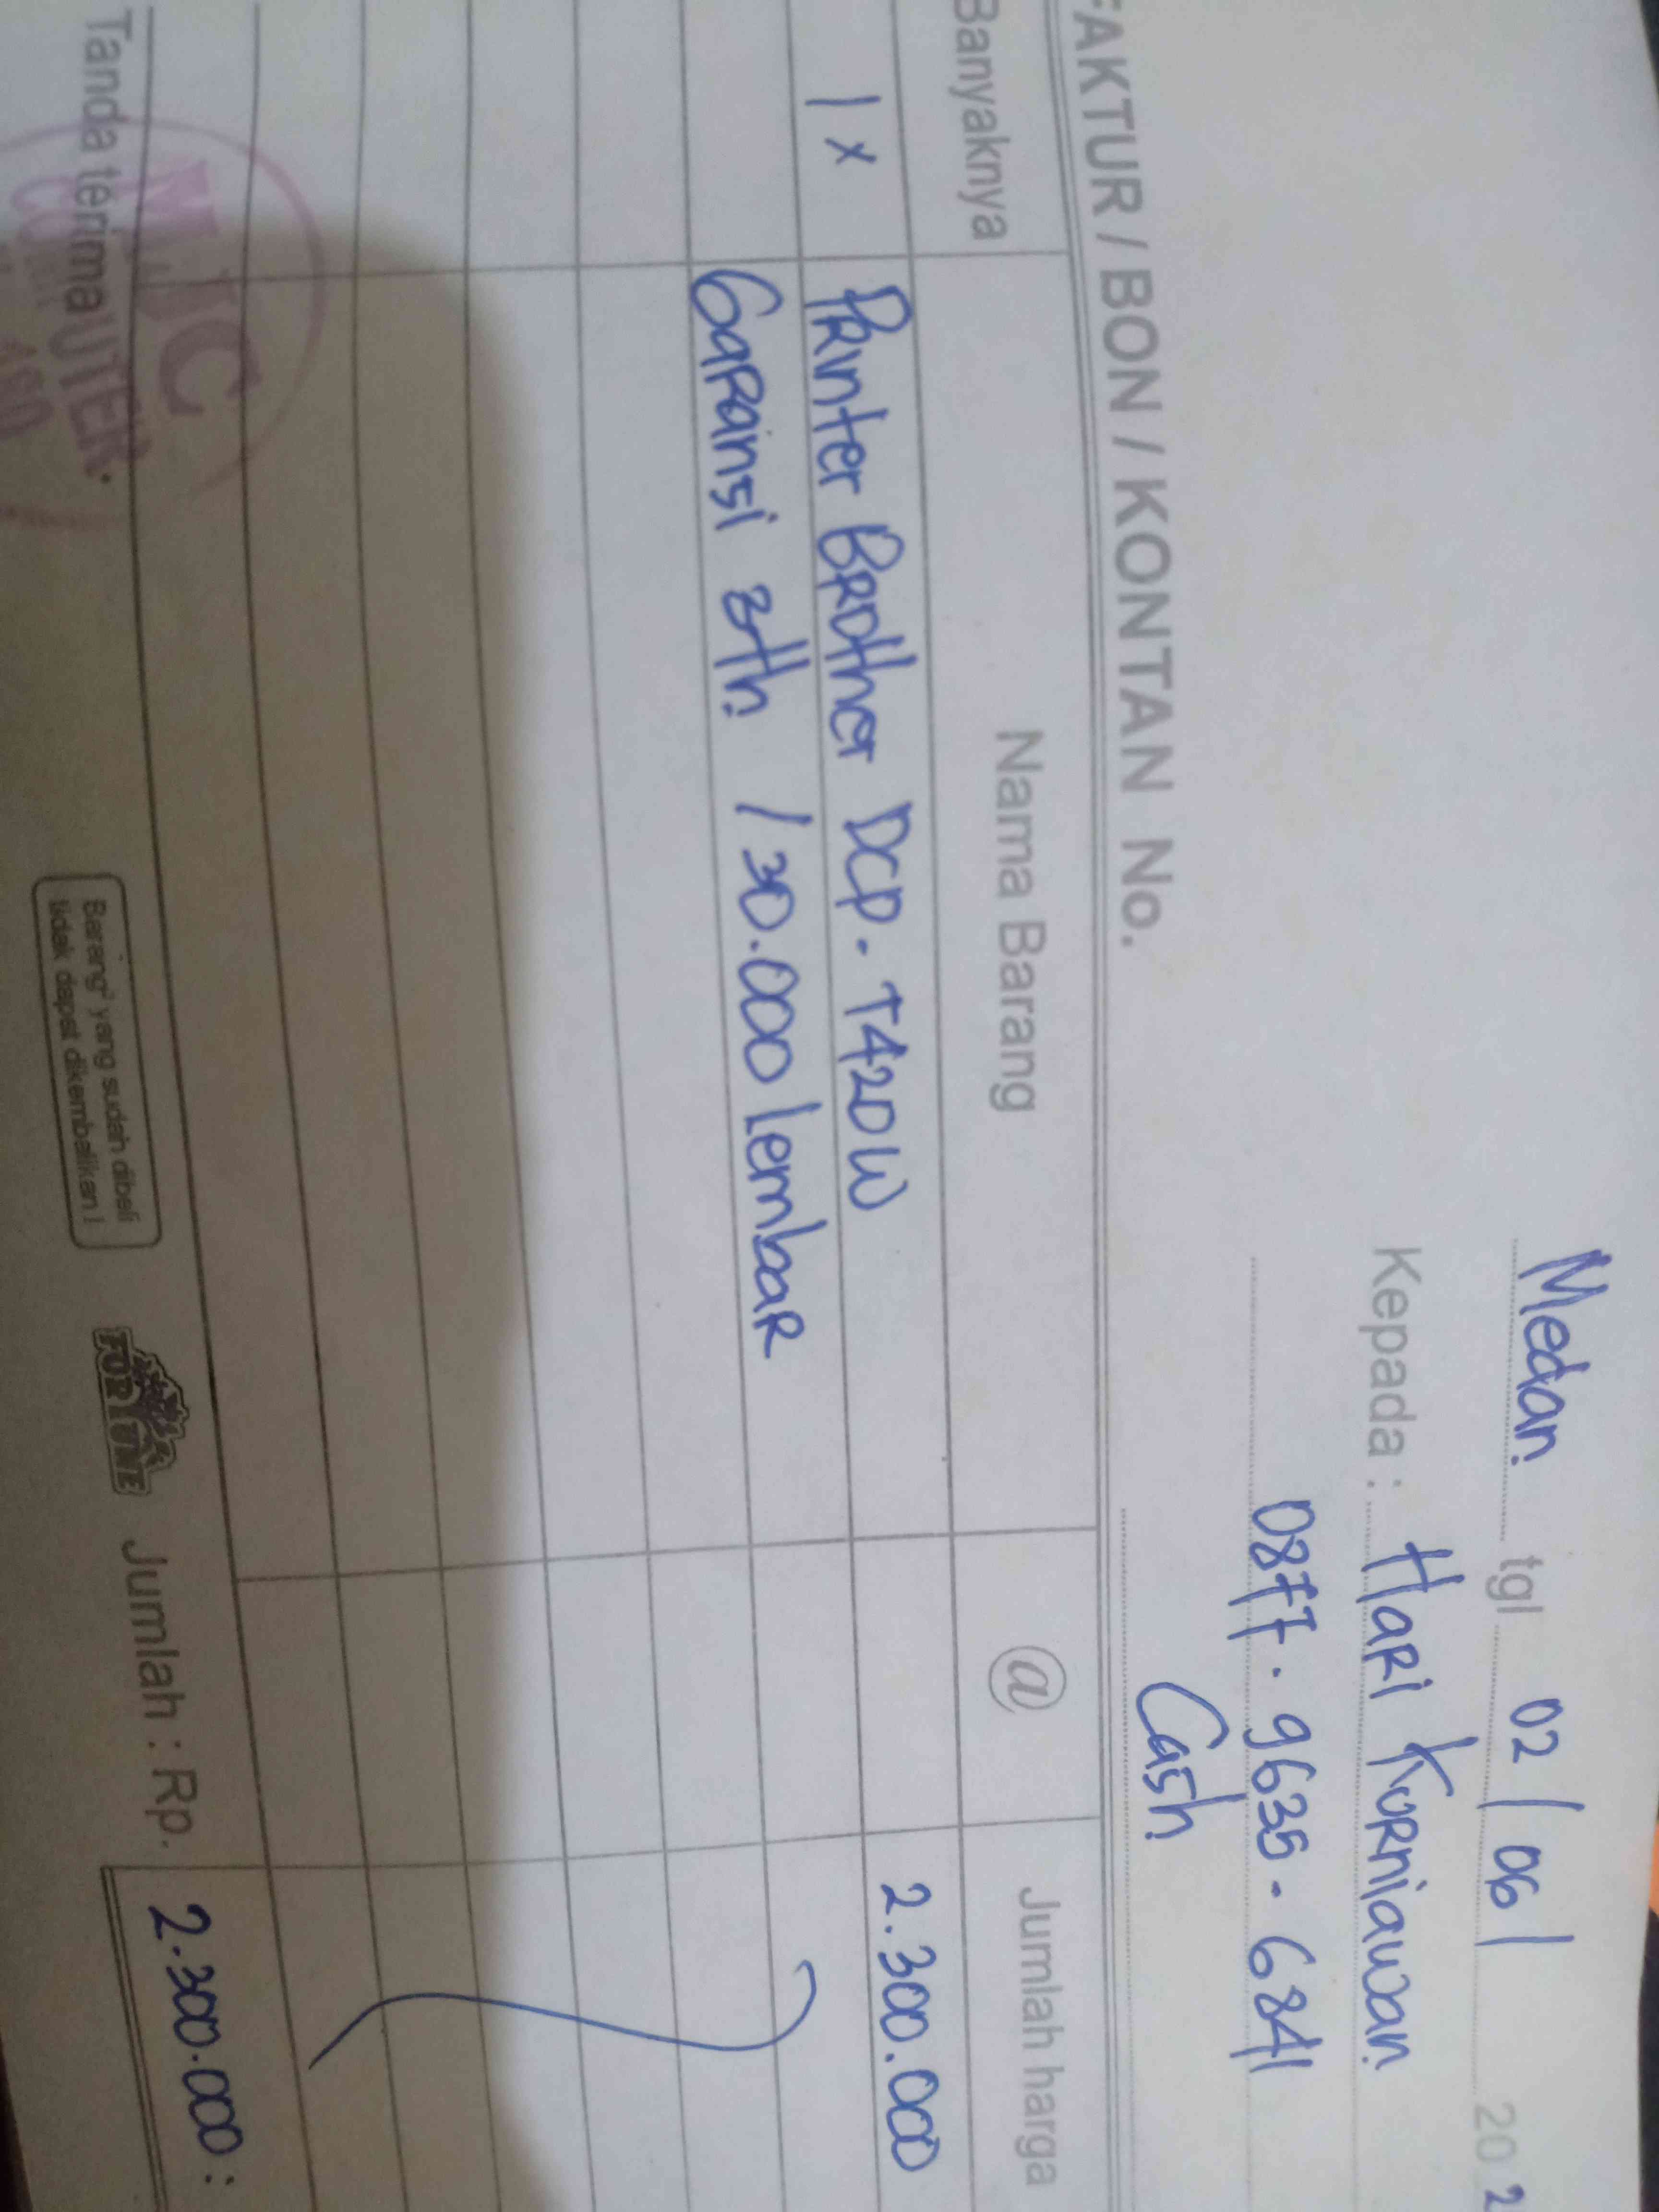 Medan tgl 02 / 06 / 202
Kepada : Hari Kurniawan
0877 . 9635 - 6841
Cash
FAKTUR / BON / KONTAN No.
Banyaknya Nama Barang @ Jumlah harga
1 x Printer Brother DCP - T420W 2.300.000
Garansi 3th / 30.000 lembar
Tanda terima Jumlah : Rp. 2.300.000 :
Barang² yang sudah dibeli
tidak dapat dikembalikan !
FORTUNE